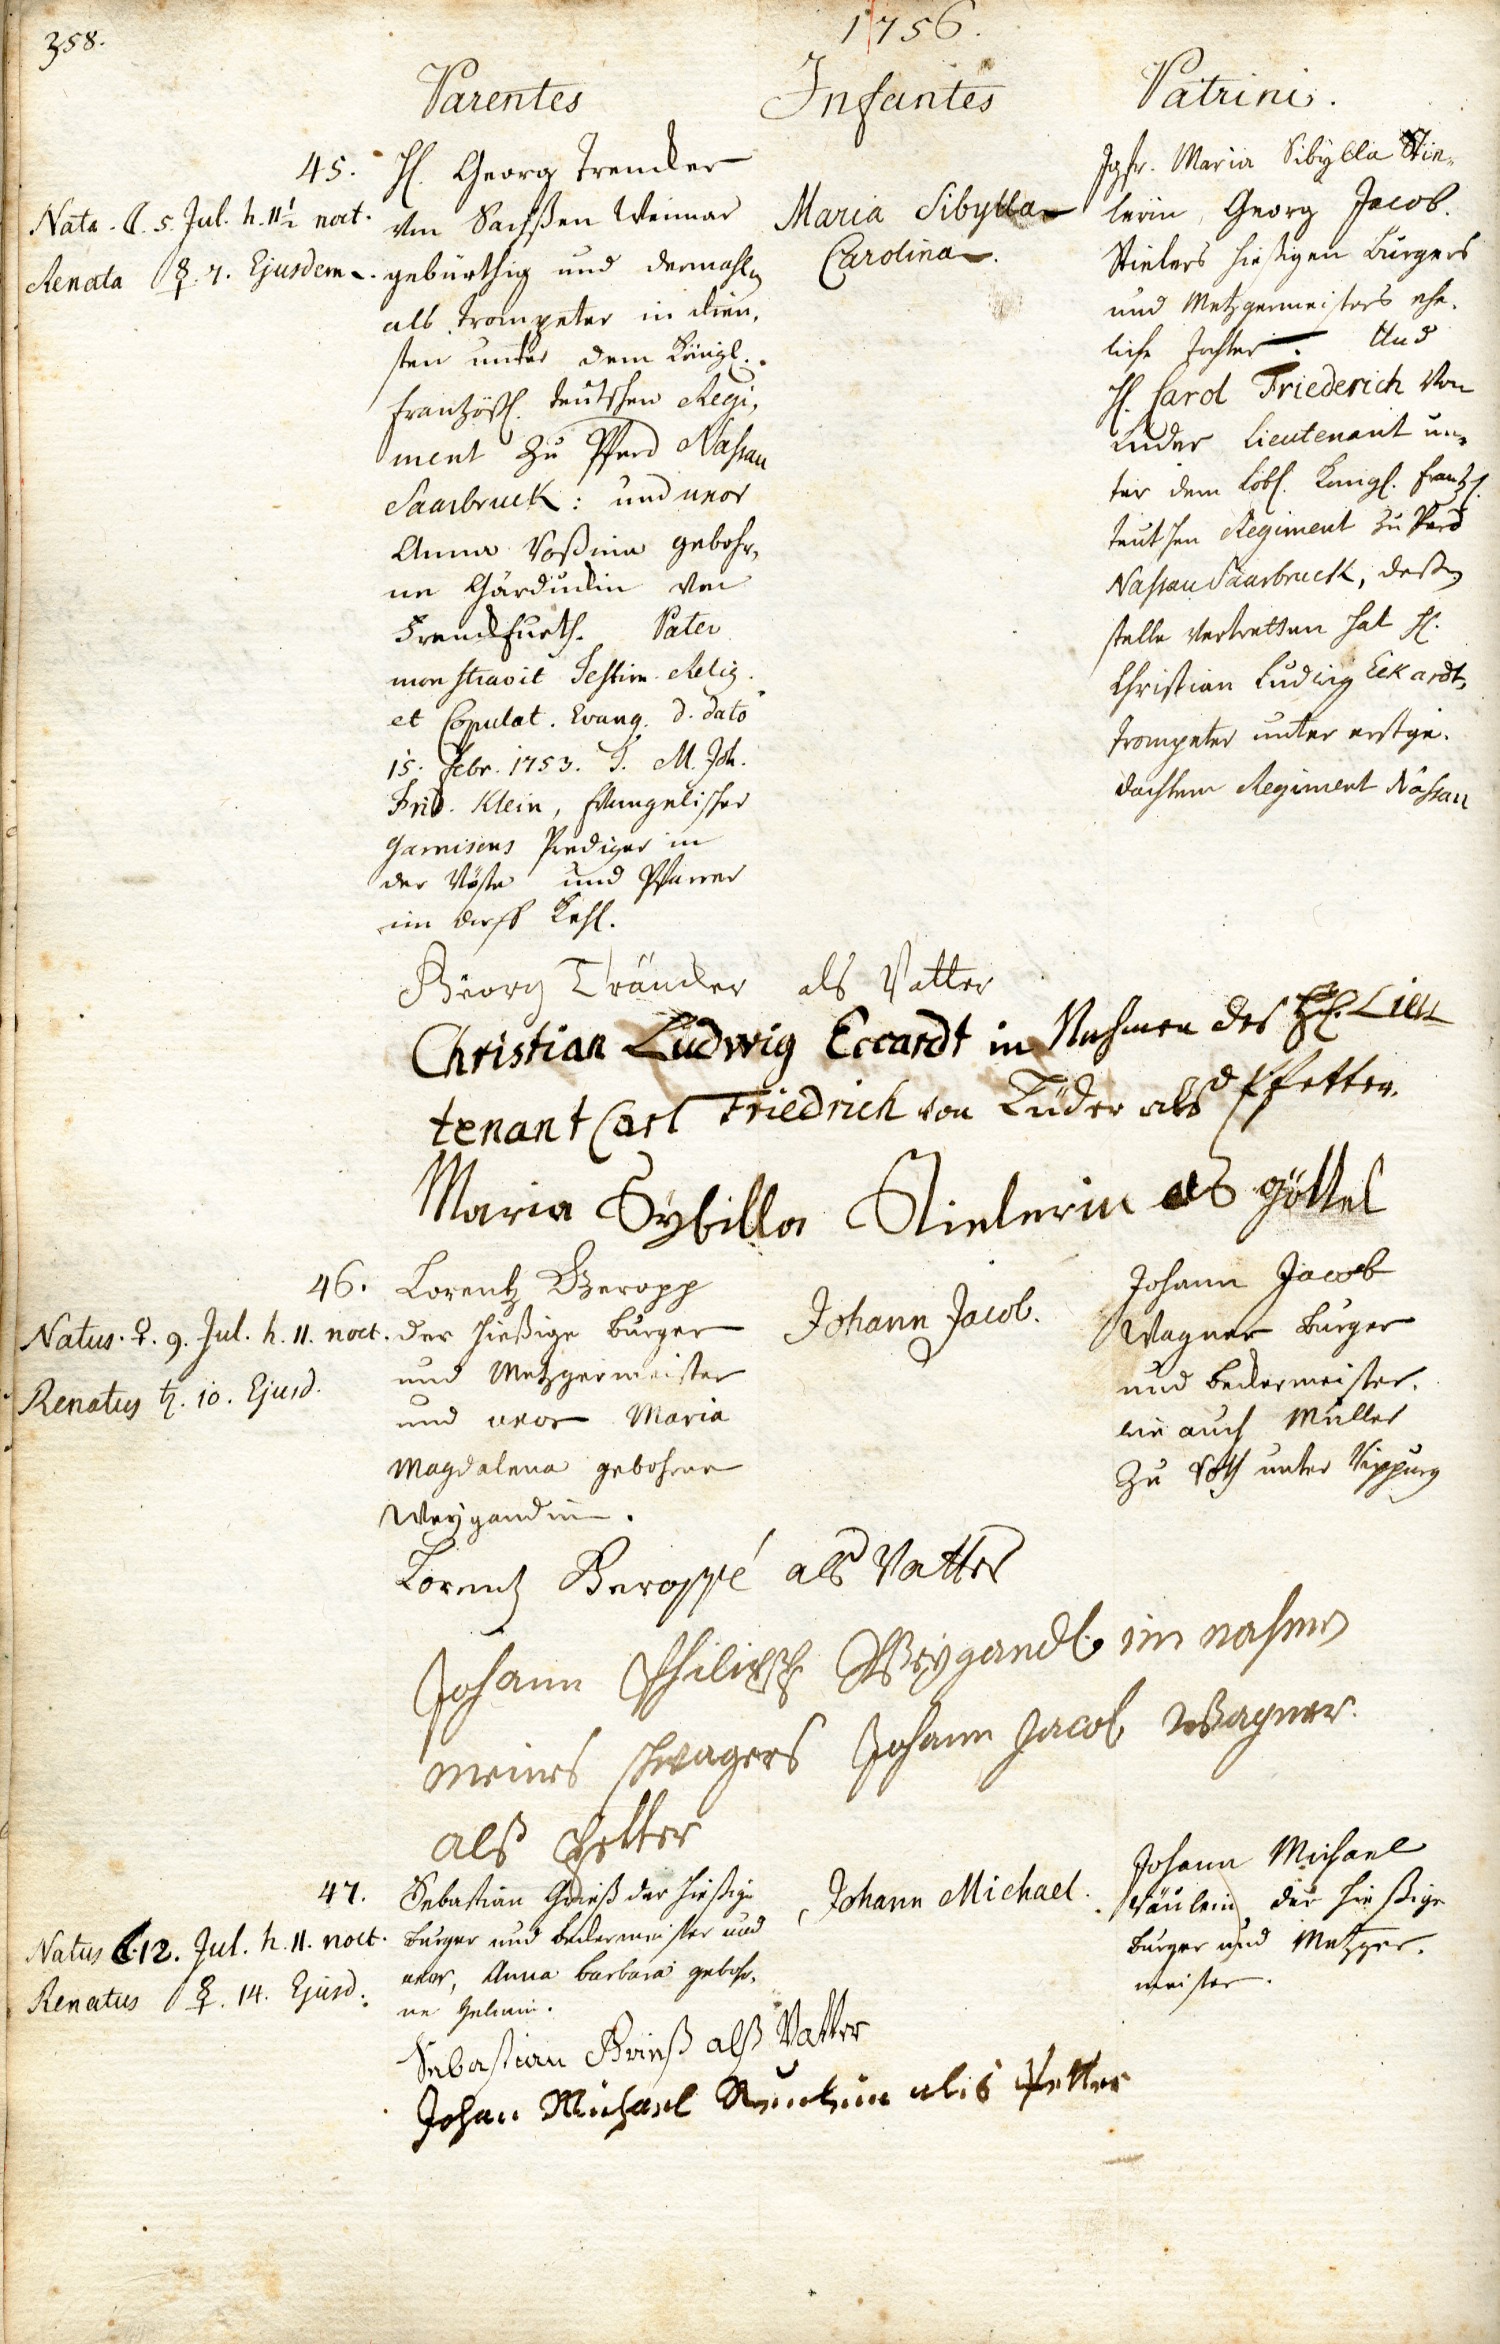 358.
1756.
Parentes
Infantes
Patrini.
45.
Nata. ☾. 5. Jul. h. 11½ noct.
Renata ☿. 7. Ejusdem.
H. Georg Trencker
von Sachßen Weimar
gebürthig und dermahlen
als Trompeter in dien,
sten unter dem Königl.
Frantzößl. teutschen Regi,
ment zu Pferd Naßau
Saarbruck: und uxor
Anna Voßina gebohr,
ne von
Franckfurth. Pater
monstravit Testim. Relig.
et Copulat. Evang. d. dato
15. Febr. 1753. T. M. Joh.
Frid. Klein, Evangelischer
Garnisons Prediger in
der Vöste und Pfarrer
im dorff Kehl.
Maria Sibylla
Carolina.
Jgfr. Maria Sibylla Stie,
lerin, Georg Jacob.
Stielers hießigen Burgers
und Metzgermeisters ehe,
liche Tochter. Und
H. Carol Friederich von
Lüder Lieutenant un,
ter dem Löbl. Königl. Frantzl.
teutschen Regiment zu Pferd
Naßau Saarbruck, deßen
stelle vertretten hat H.
Christian Ludwig Eckardt,
Trompeter unter erstge,
dachtem Regiment Naßau
Georg Träncker als Vatter
Christian Ludwig Eccardt in Nahmen des H. Lieu
tenant Carl Friedrich von Lüder als Pfetter.
Maria Sybilla Stielerin als göttel
46.
Natus. ♀. 9. Jul. h. 11. noct.
Renatus ♄. 10. Ejusd.
Lorentz Geropp
der hießige burger
und Metzgermeister
und uxor Maria
Magdalena gebohrne
Weygandin.
Johann Jacob.
Johann Jacob
Wagner burger
und beckermeister.
wie auch Müller
zu unter
Lorentz Geroppé als Vatter
Johann Philipp Weygandt im nahmen
meines schwagers Johann Jacob Wagner.
alß Petter
47.
Natus ☾. 12. Jul. h. 11. noct.
Renatus ☿. 14. Ejusd.
Sebastian Grieß der hießige
burger und beckermeister und
uxor, Anna barbara gebohr,
ne
Johann Michael.
Johann Michael
der hießige
burger und Metzger,
meister.
Sebastian Grieß alß Vatter
Johan Michael als Petter